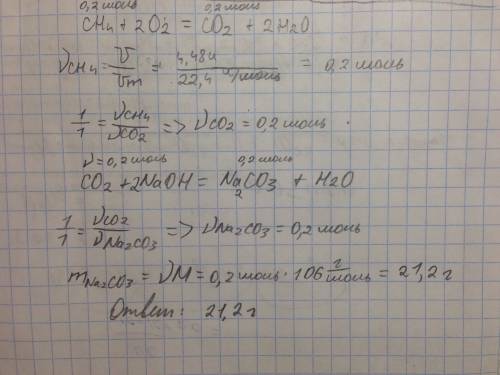 0,2 моль 0,2 моль
CH4 + 2O2 = CO2 + 2H2O
νCH4 = V/Vm = 4,48л/22,4 л/моль = 0,2 моль
1/1 = νCH4/νCO2 => νCO2 = 0,2 моль.
ν=0,2 моль 0,2 моль
CO2 + 2NaOH = Na2CO3 + H2O
1/1 = νCO2/νNa2CO3 => νNa2CO3 = 0,2 моль
mNa2CO3 = νM = 0,2 моль · 106 г/моль = 21,2 г
Ответ: 21,2 г